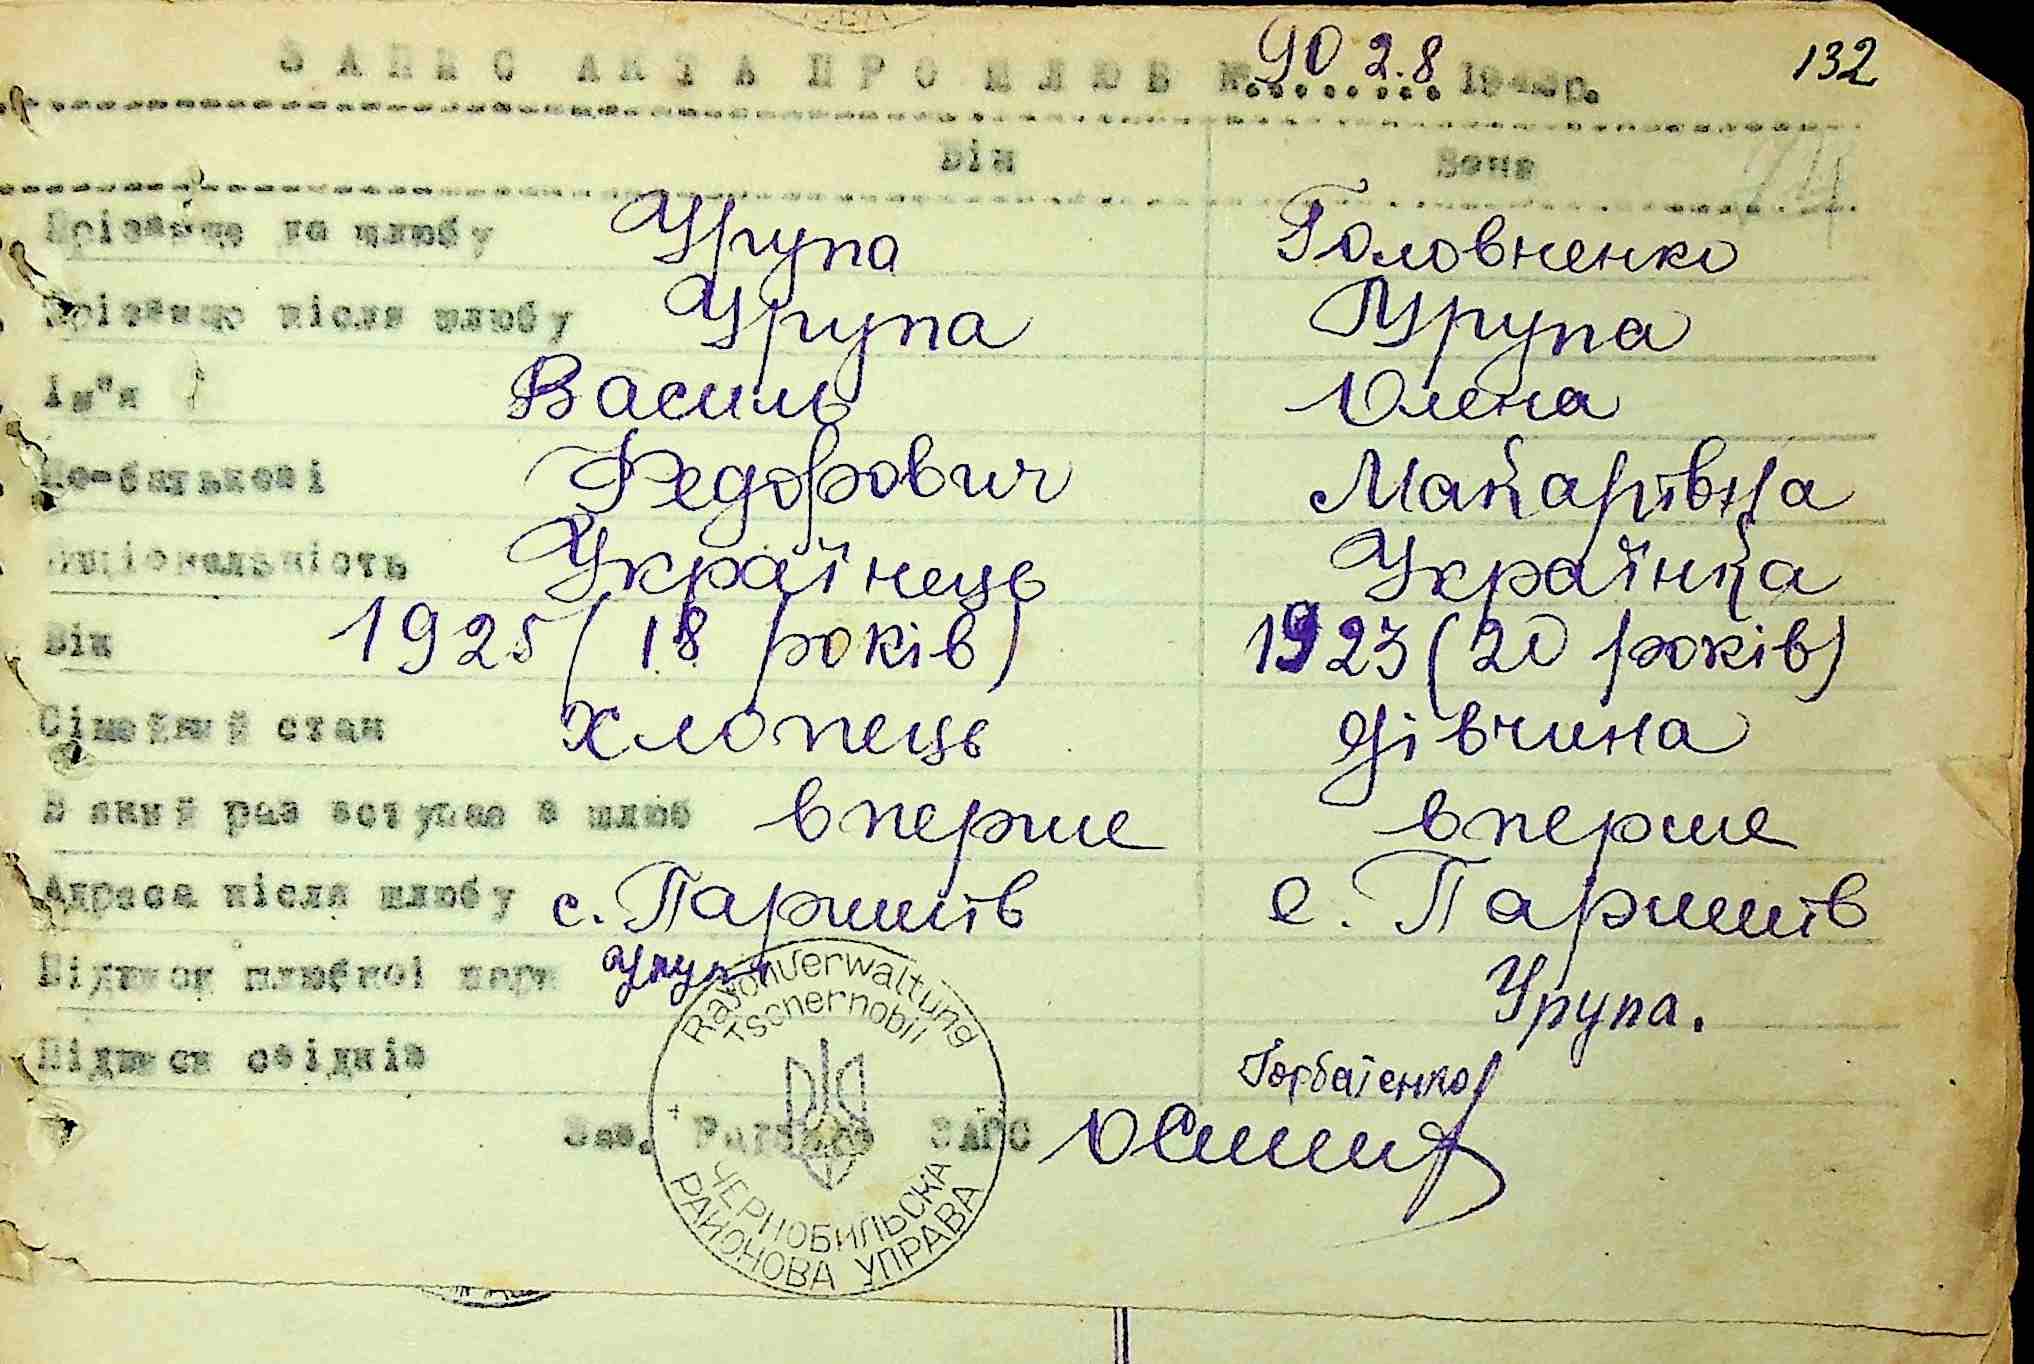 132
ЗАПИС АКТА ПРО ШЛЮБ № 90 2.8 194 р.
Він Вона
Прізвище до шлюбу Урупа Головненко
Прізвище після шлюбу Урупа Урупа
Ім"я Василь Олена
По-батькові Федорович Макарівна
Національність Українець Українка
Вік 1925 (18 років) 1923 (20 років)
Сімейний стан хлопець дівчина
В який раз вступає в шлюб вперше вперше
Адреса після шлюбу с. Паришів с. Паришів
Підписи шлюбної пари Урупа Урупа.
Підписи свідків Горбаїенко
Зав. ЗАГС
Rayonverwaltung
Tschernobil
ЧЕРНОБИЛЬСКА
РАЙОНОВА УПРАВА